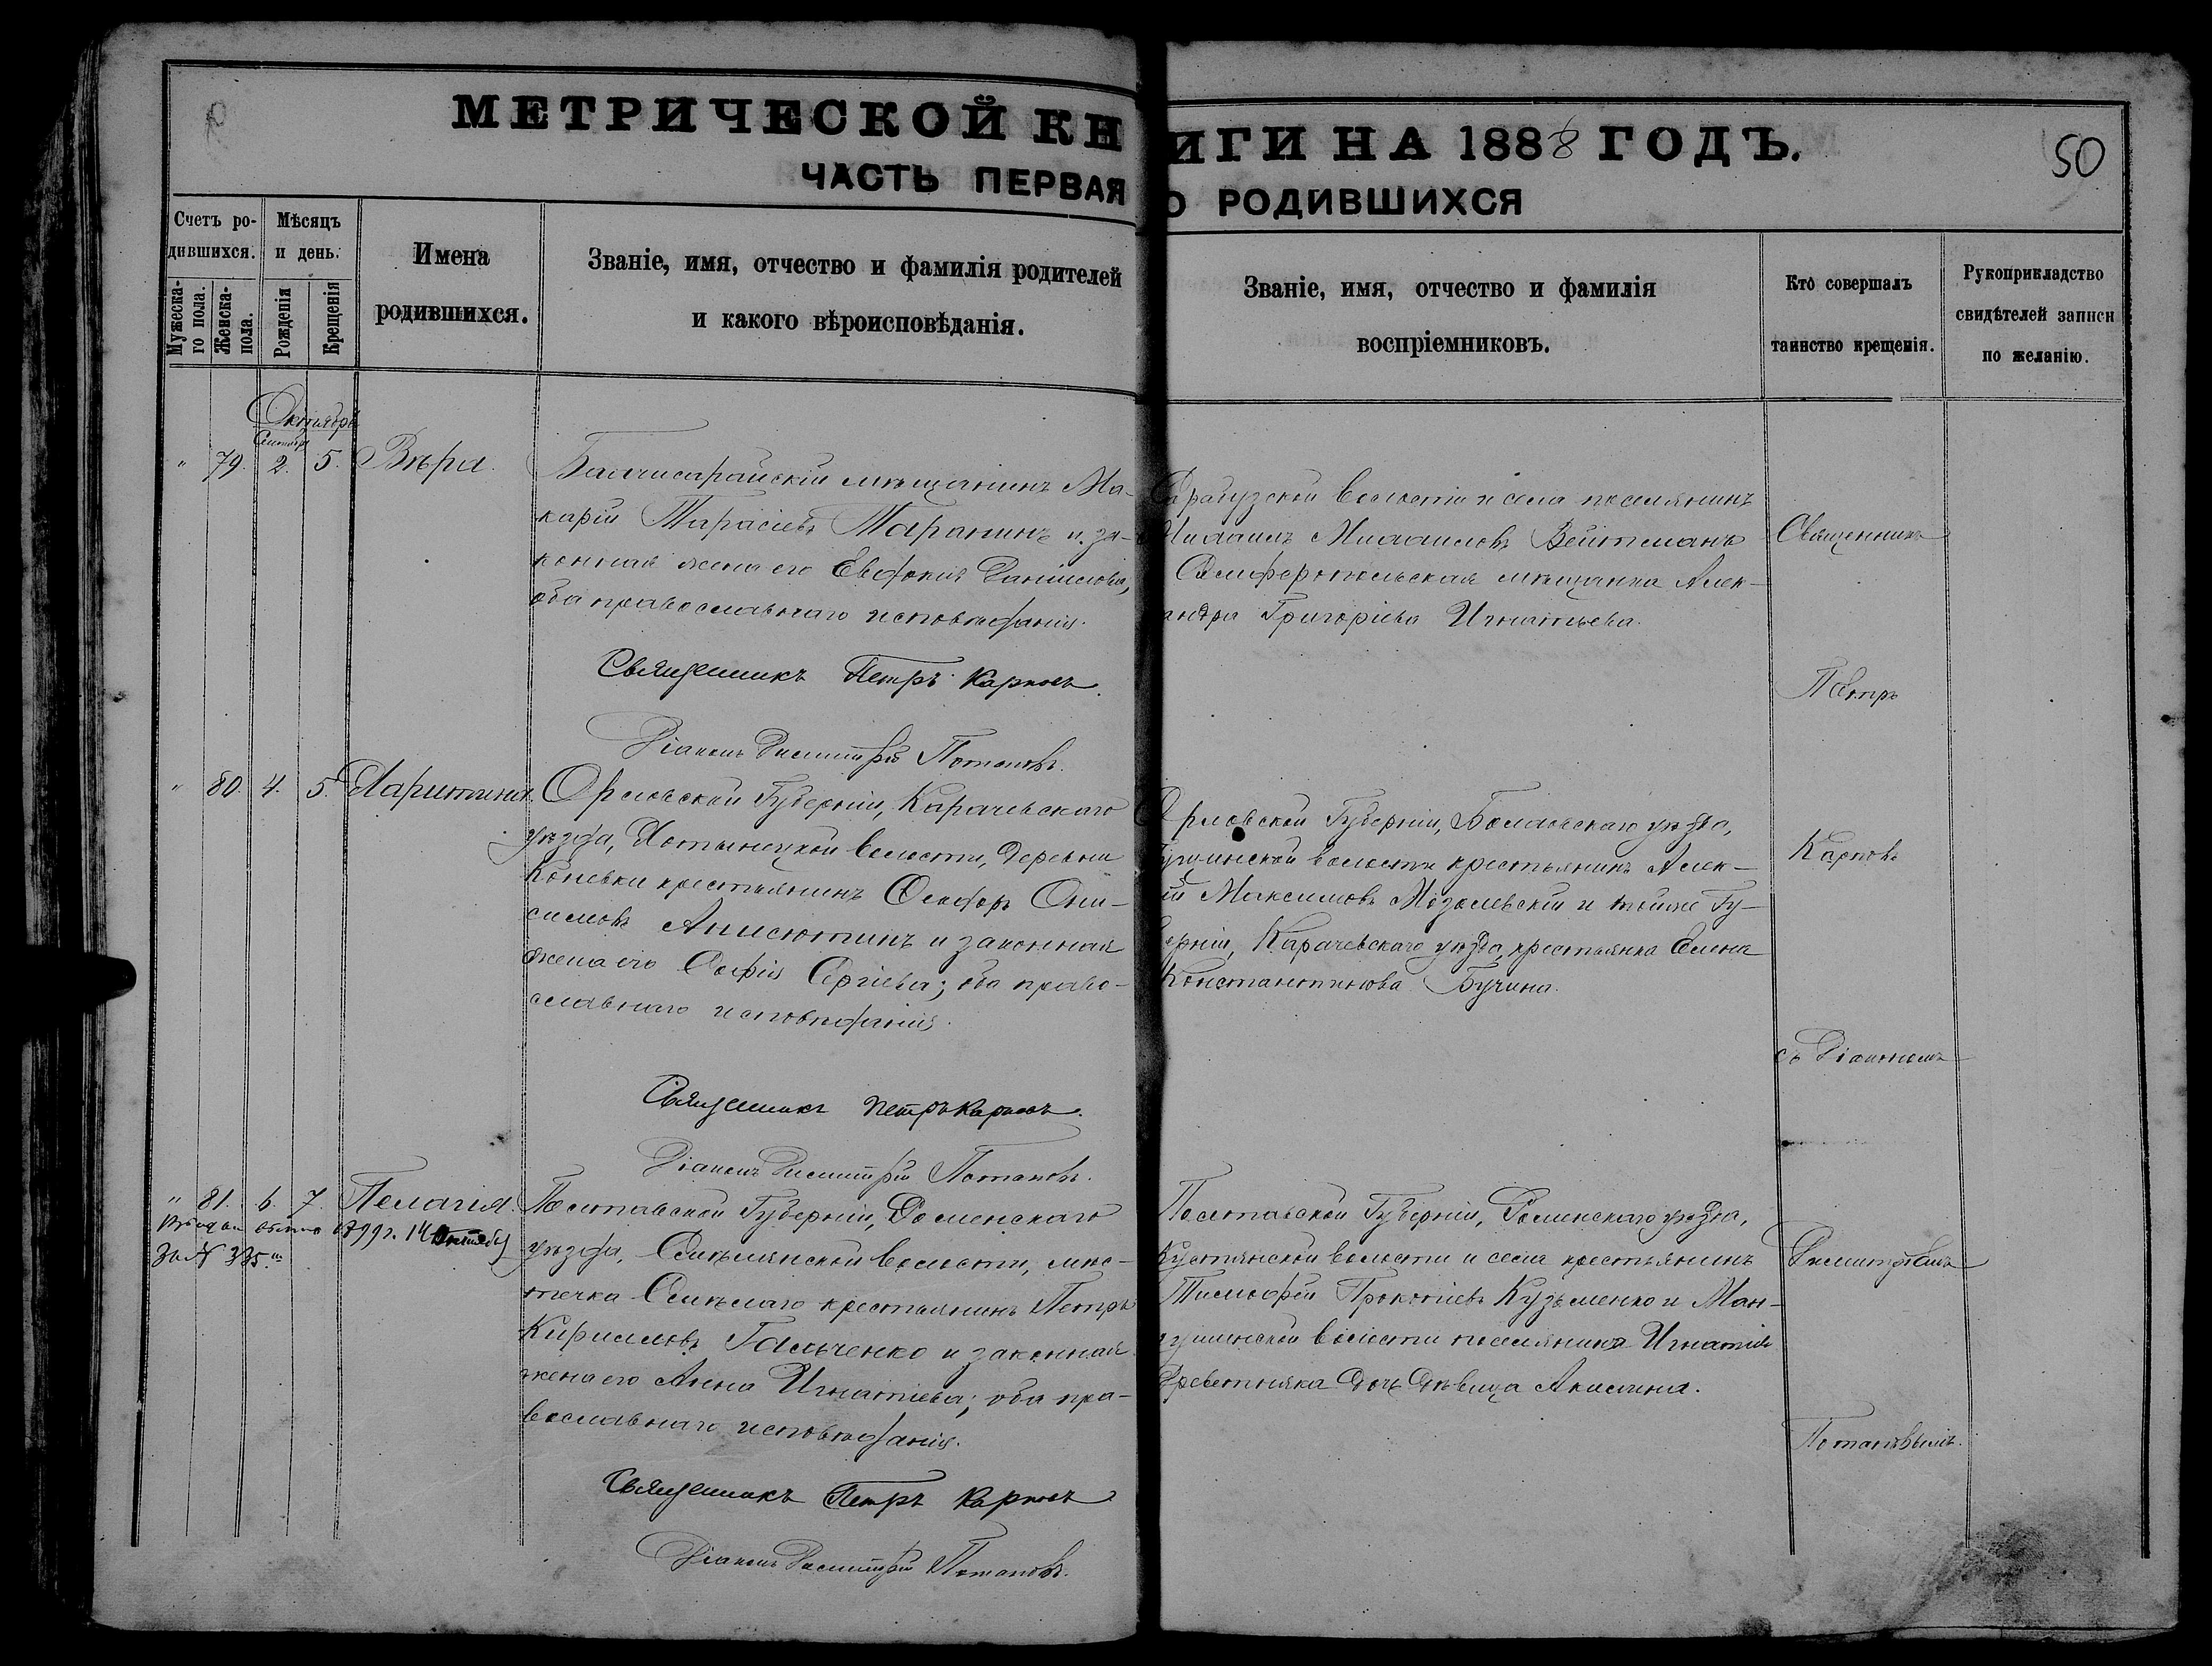 МЕТРИЧЕСКОЙ КНИГИ НА 1888 ГОДЪ.
50
ЧАСТЬ ПЕРВАЯ О РОДИВШИХСЯ
Счетъ ро-
дившихся.
Мужеска-
го пола.
Женска-
пола.
Мѣсяцъ
и день.
Рожденія
Крещенія
Имена
родившихся.
Званіе, имя, отчество и фамилія родителей
и какого вѣроисповѣданія.
Званіе, имя, отчество и фамилія
воспріемниковъ.
Кто совершалъ
таинство крещенія.
Рукоприкладство
свидѣтелей записи
по желанію.
Октябрь
Сентябр
" 79. 2. 5. Вѣра.
Бахчисарайскій мѣщанинъ Ма-
карій Тарасіевъ Таранинъ и за-
конная жена его Евдокія Даніилова,
оба православнаго исповѣданія.
Священникъ Петръ Карповъ.
Діаконъ Димитрій Потаповъ.
Сарабузской волости и села поселянинъ
Михаилъ Михаиловъ Вейтманъ
Симферопольская мѣщанка Алек-
андра Григоріева Игнатьева.
" 80. 4. 5. Харитина.
Орловской Губерніи, Карачевскаго
уѣзда, Хотынецкой волости, деревни
Коневки крестьянинъ Ѳеодоръ Они-
симовъ Анисютинъ и законная
жена его Софія Сергіева; оба право-
славнаго исповѣданія.
Священникъ Петръ Карповъ.
Діаконъ Димитрій Потаповъ.
Орловской Губерніи, Болховскаго уѣзда,
волости крестьянинъ Алек-
ій Максимовъ и тойже Гу-
берніи, Карачевскаго уѣзда, крестьянка Елена
Константинова Бучина.
" 81. 6. 7. Пелагія.
14 Октября
За № 335.
Полтавской Губерніи, Роменскаго
уѣзда, Смѣлянской волости, мѣс-
течка Смѣлаго крестьянинъ Петръ
Кирилловъ Гальченко и законная
жена его Анна Игнатіева; оба пра-
вославнаго исповѣданія.
Священникъ Петръ Карповъ
Діаконъ Димитрій Потаповъ.
Полтавской Губерніи, Роменскаго уѣзда,
волости и села крестьянинъ
Тимофей Прокопіевъ Кузьменко и Ман-
гушинской волости поселянина Игнатія
дочь дѣвица Акилина.
Священникъ
Петръ
Карповъ
съ Діакономъ
Димитріемъ
Потаповымъ.